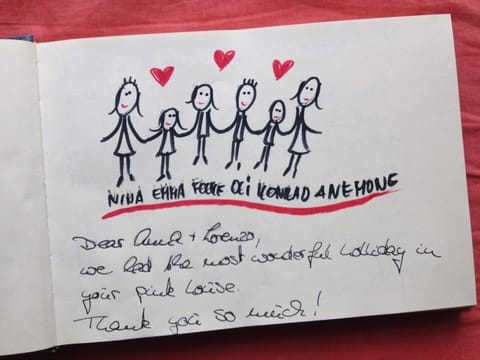 NINA EMMA FOCKE OLI KONRAD ANEMONE
Dear Anna + Lorenzo,
we had the most wonderful holliday in
your pink house.
Thank you so much!